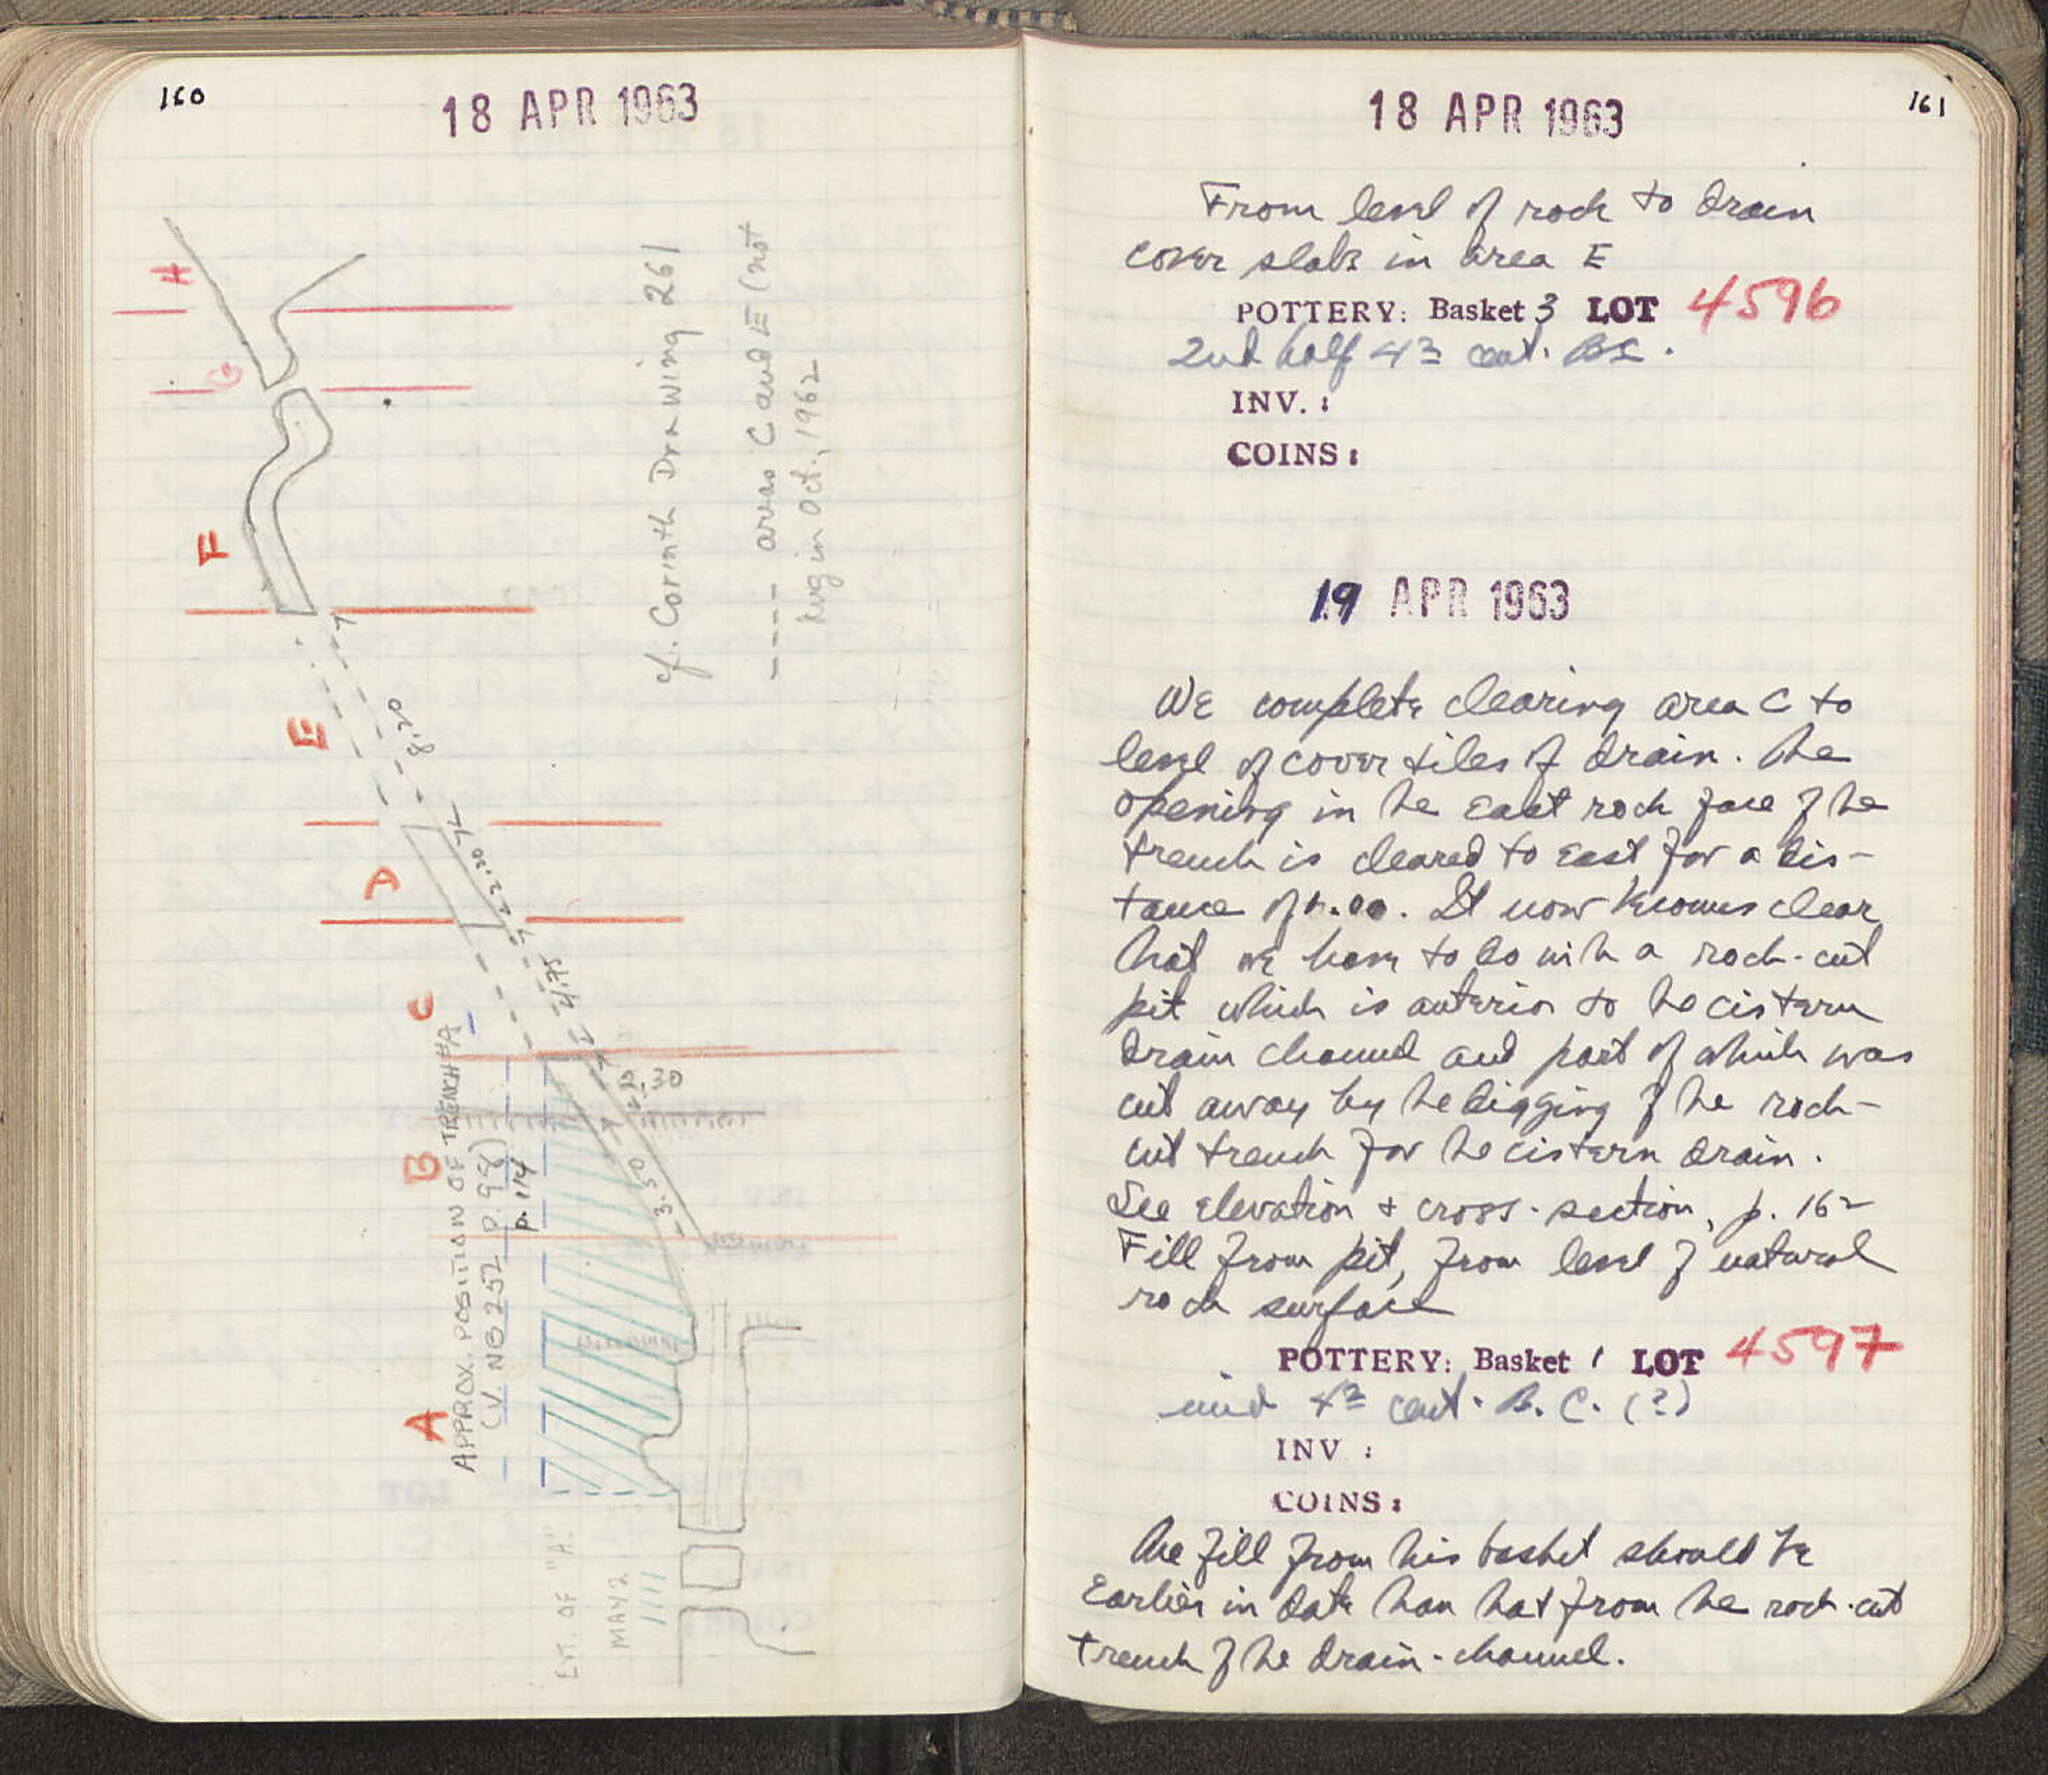 160
18 APR 1963
H
G
F
E
D
C
B
A
cf. Corinth Drawing 261
---- areas C and E (not
dug in Oct., 1962
8.20
2.30
4.75
2.30
3.50
APPROX. POSITION OF TRENCH A
(V. NB 252 P. 98)
p. 114
EXT. OF "A."
MAY 2
161
18 APR 1963
From level of rock to drain
cover slabs in area E
POTTERY: Basket 3 LOT 4596
2nd half 4th cent. BC.
INV. :
COINS :
19 APR 1963
We complete clearing area C to
level of cover tiles of drain. The
opening in the east rock face of the
trench is cleared to east for a dis-
tance of
. It now becomes clear
that we have to do with a rock-cut
pit which is anterior to the cistern
drain channel and part of which was
cut away by the digging of the rock-
cut trench for the cistern drain.
See elevation + cross-section, p. 162
Fill from pit, from level of natural
rock surface
POTTERY: Basket 1 LOT 4597
mid 4th cent. B.C. (?)
INV :
COINS :
The fill from this basket should be
earlier in date than that from the rock-cut
trench of the drain-channel.